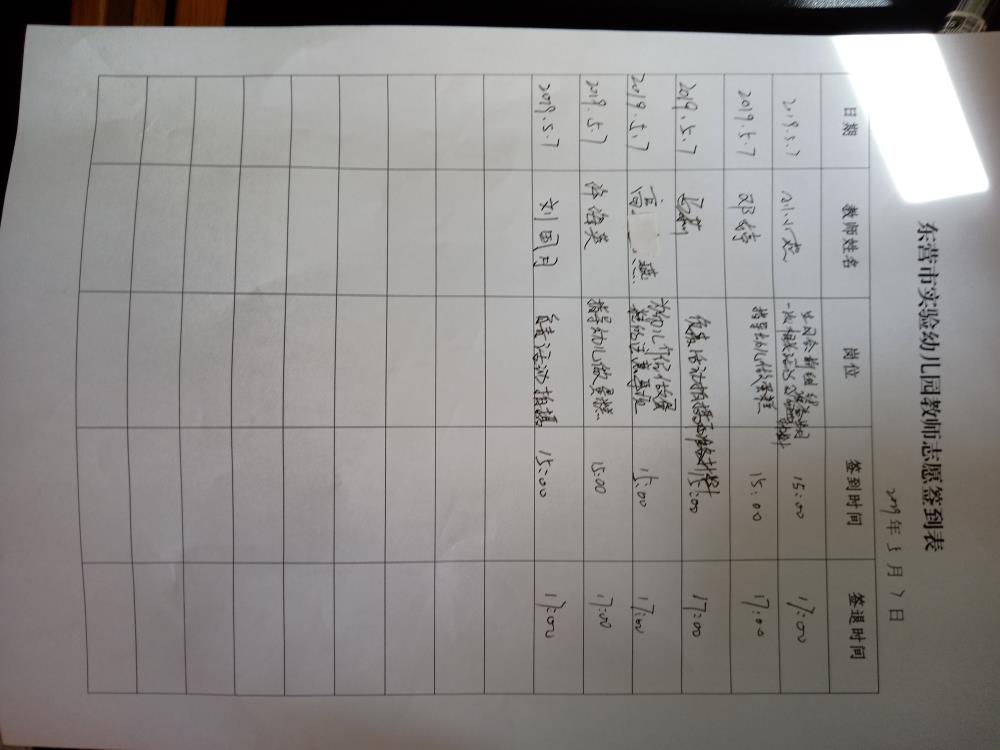 东营市实验幼儿园教师志愿签到表
2019年5月7日
日期 教师姓名 岗位 签到时间 签退时间
2019.5.7 15:00 17:00
2019.5.7 邓婷 指导幼儿做蛋糕 15:00 17:00
2019.5.7 15:00 17:00
2019.5.7 高 燕 15:00 17:00
2019.5.7 海英 指导幼儿做蛋糕 15:00 17:00
2019.5.7 刘圆月 负责活动拍摄 15:00 17:00